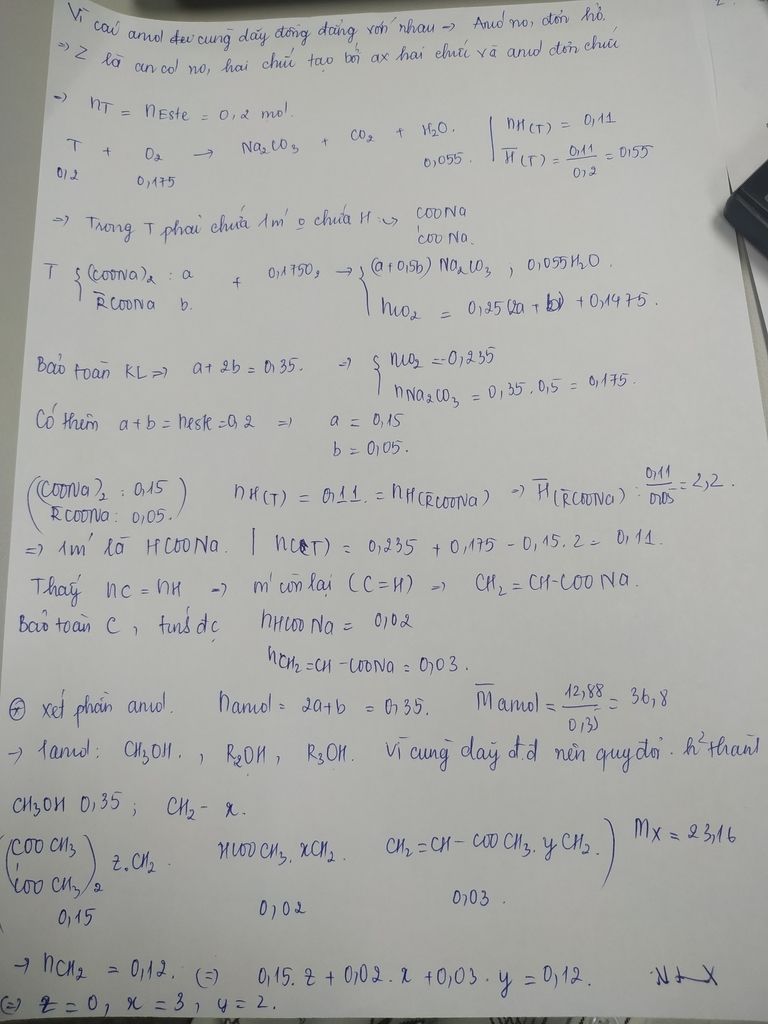 Vì các ancol đều cùng dãy đồng đẳng với nhau → Ancol no, đơn hở.
=> Z là ancol no, hai chức tạo bởi ax hai chức và ancol đơn chức
=> nT = nEste = 0,2 mol.
T + O2 → Na2CO3 + CO2 + H2O. | nH(T) = 0,11
0,2 0,175 0,055. | H̅(T) = 0,11/0,2 = 0,55
=> Trong T phải chứa 1 m' o chứa H => COONa
COONa.
T { (COONa)2 : a + 0,175O2 → { (a+0,5b) Na2CO3 ; 0,055H2O.
R̅COONa b. nCO2 = 0,25(2a + b) + 0,1475.
Bảo toàn KL => a + 2b = 0,35. => { nCO2 = 0,235
nNa2CO3 = 0,35.0,5 = 0,175.
Có thêm a+b = neste = 0,2 => a = 0,15
b = 0,05.
(COONa)2 : 0,15 nH(T) = 0,11 = nH(R̅COONa) => H̅(R̅COONa) : 0,11/0,05 = 2,2.
R̅COONa : 0,05.
=> 1 m' là HCOONa. | nC(T) = 0,235 + 0,175 - 0,15.2 = 0,11.
Thấy nC = nH => m' còn lại (C=H) => CH2=CH-COONa.
Bảo toàn C, tính đc nHCOONa = 0,02
nCH2=CH-COONa = 0,03.
⊛ xét phần ancol. nancol = 2a+b = 0,35. M̅ancol = 12,88/0,35 = 36,8
→ 1 ancol: CH3OH., R2OH, R3OH. Vì cùng dãy đ.đ nên quy đổi h² thành
CH3OH 0,35 ; CH2 - x.
(COOCH3 z.CH2. HCOOCH3.xCH2. CH2=CH-COOCH3.yCH2.) MX = 23,16
COOCH3)2
0,15 0,02 0,03.
→ nCH2 = 0,12. (=) 0,15.z + 0,02.x + 0,03.y = 0,12.
(=) z = 0, x = 3, y = 2.